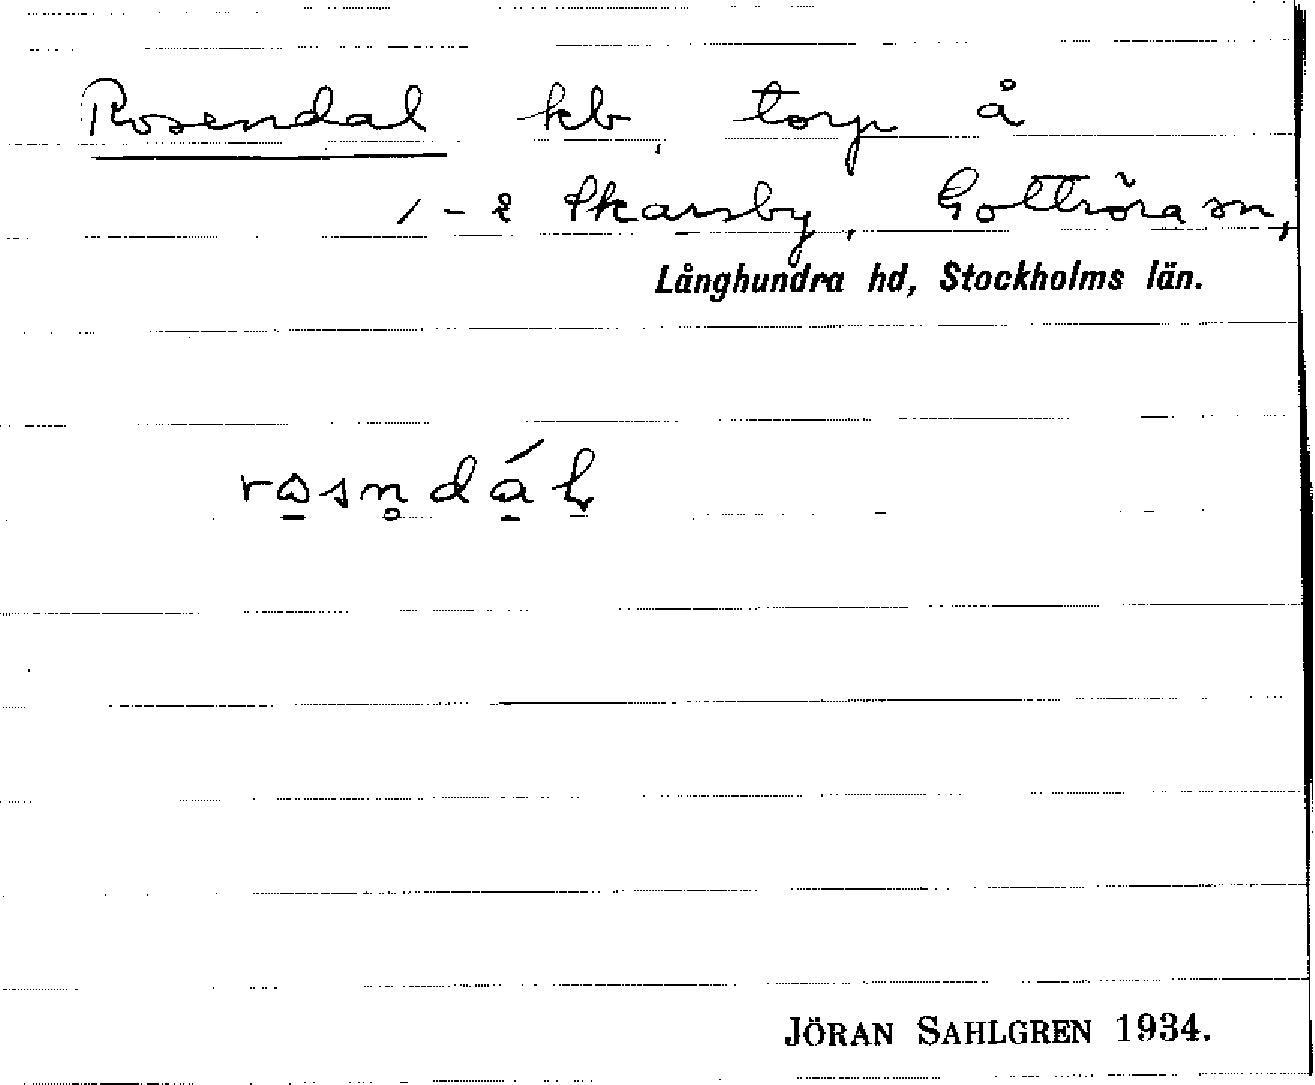 Rosendal kb, torp å
1-2 Skarsby, Gottröra sn,
Långhundra hd, Stockholms län.
JÖRAN SAHLGREN 1934.